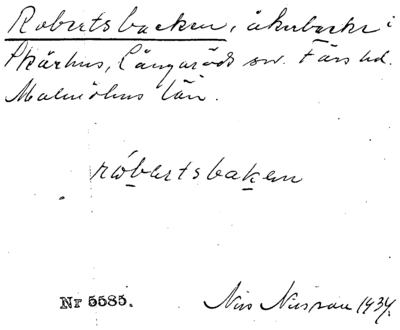 Robertsbacken, åkerbacke i
Skärhus, Långaröds sn. Färs hd.
Malmöhus län.
róbertsbaken
Nr 5585.
Nils Nilsson 1934.